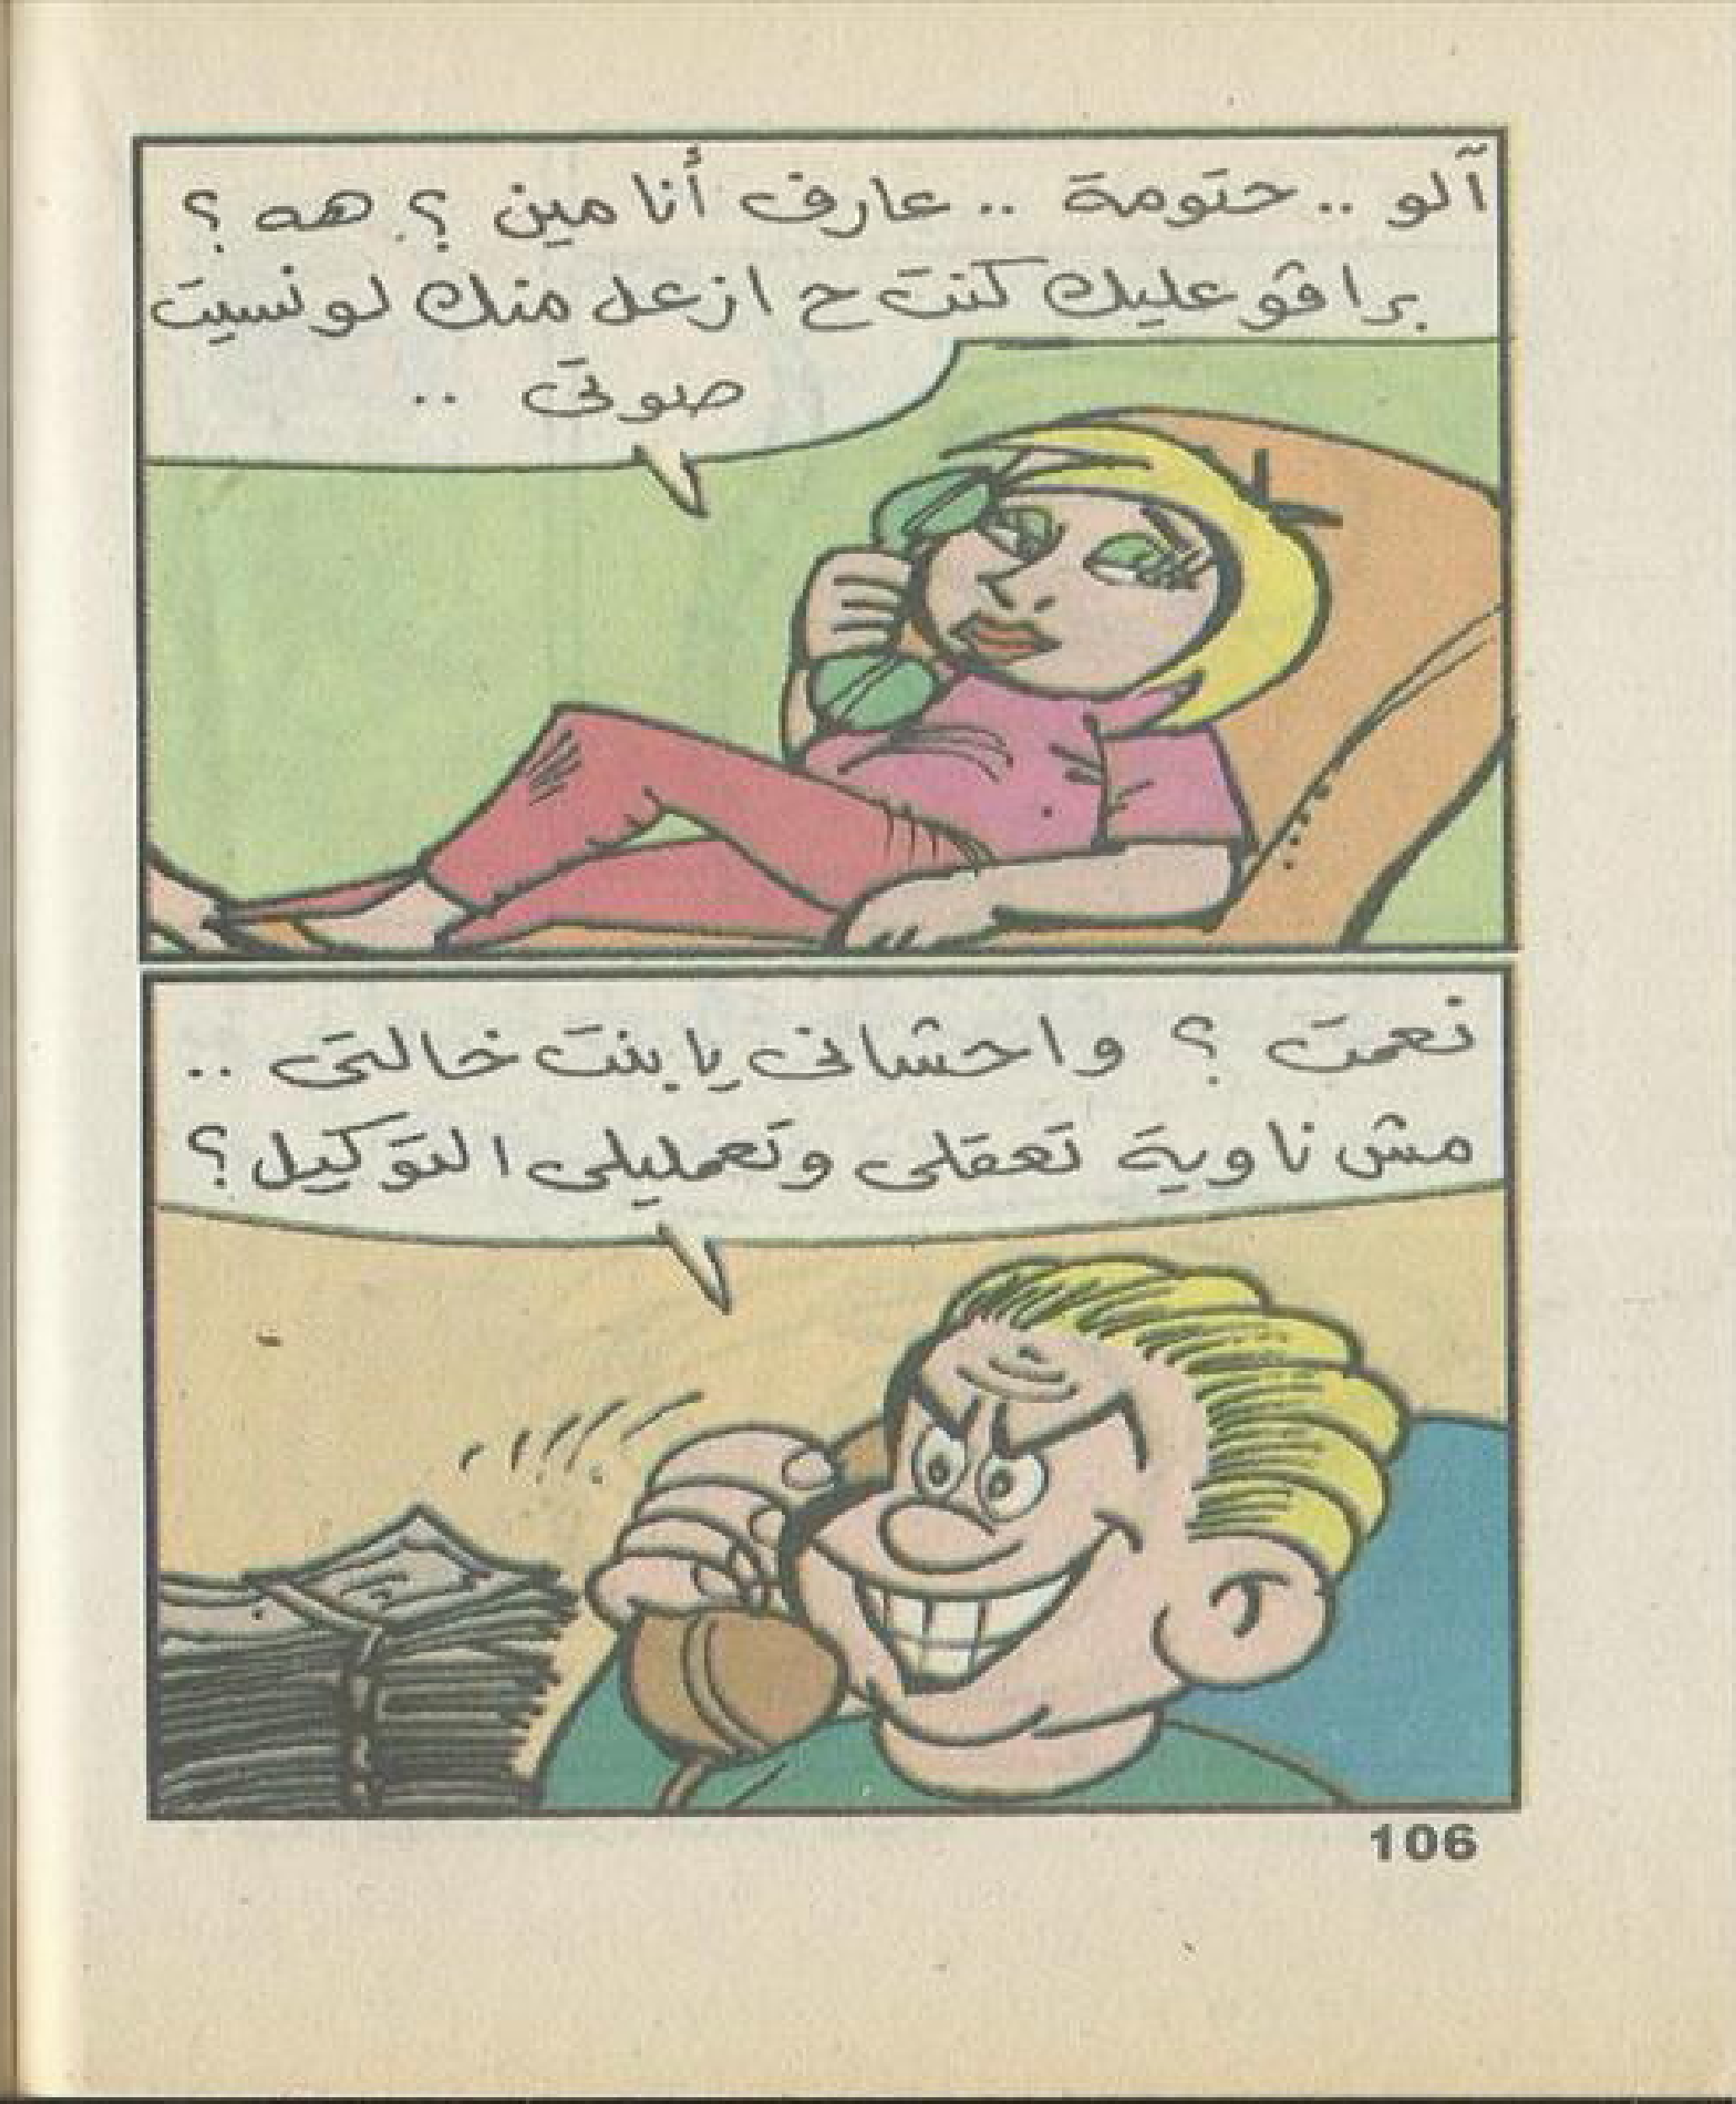 آلو .. حتومة .. عارف أنا مين ؟ هه ؟
براڤو عليك كنت ح ازعل منك لو نسيت
صوتى ..
نعمت ؟ واحشانى يا بنت خالتى ..
مش ناوية تعقلى وتعمليلى التوكيل ؟
106